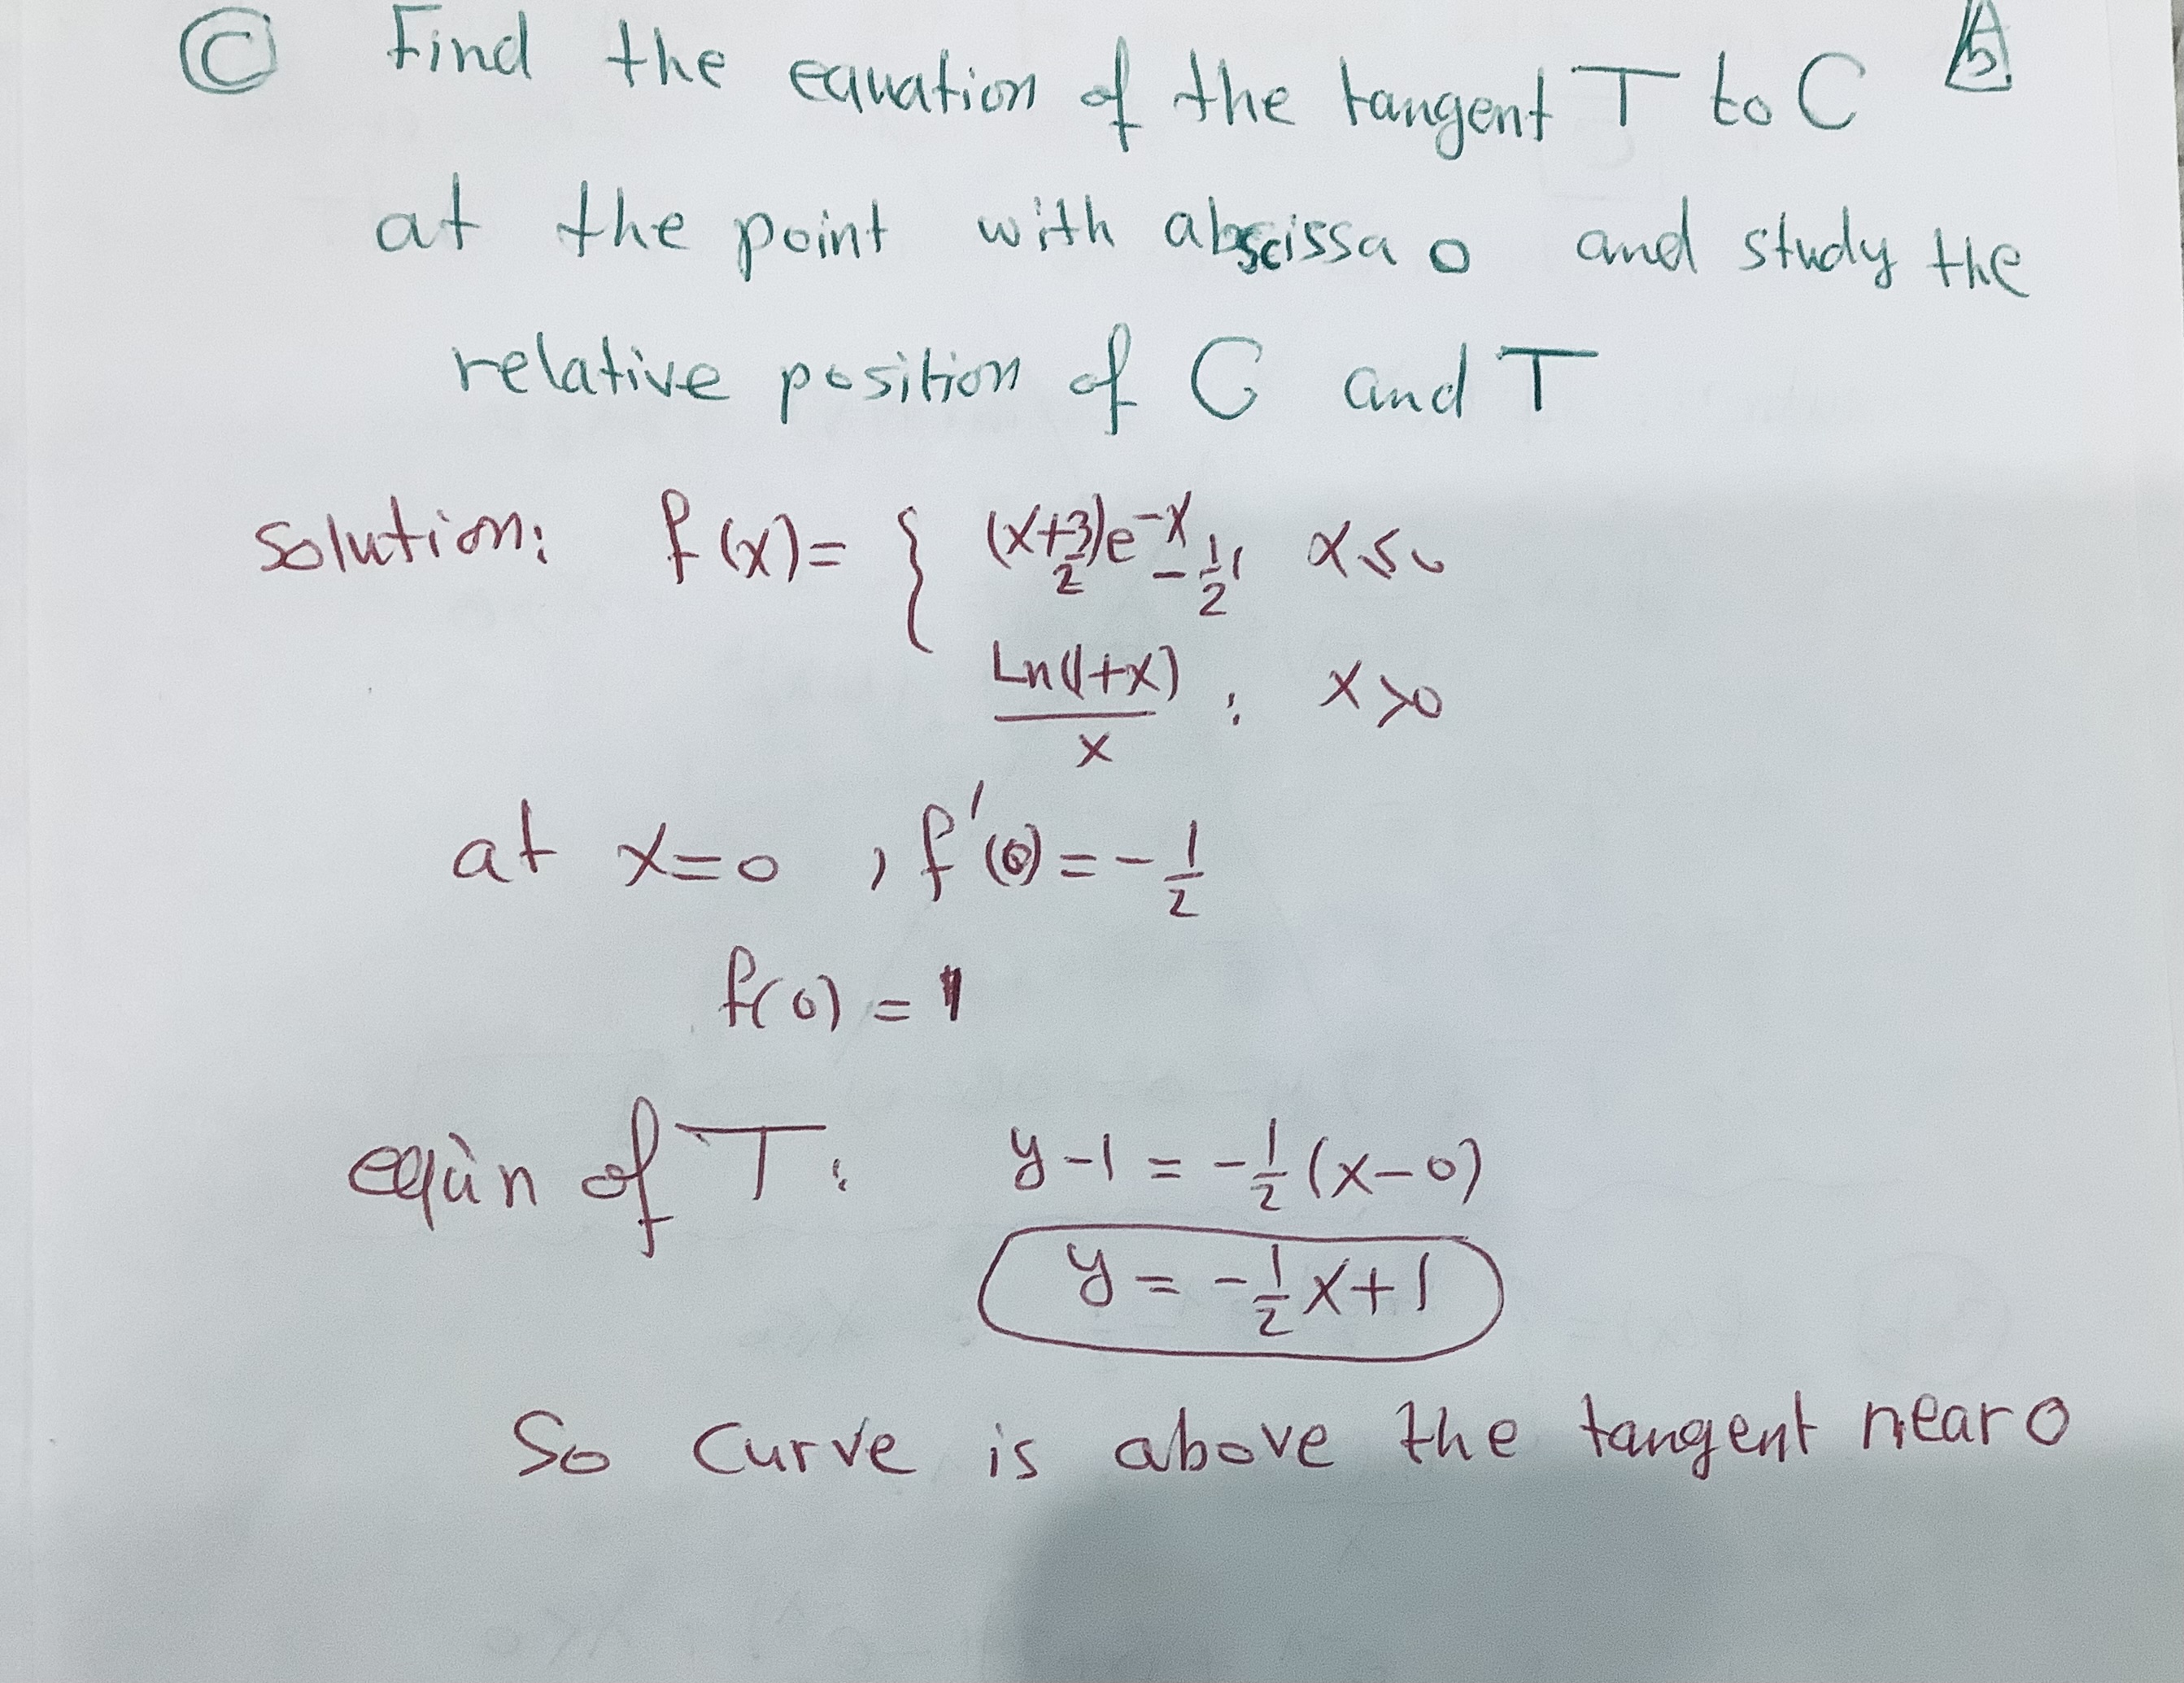 © Find the equation of the tangent T to C 5
at the point with abscissa 0 and study the
relative position of C and T
Solution: f(x) = { (x+3/2)e^-x - 1/2, x ≤ 0
Ln(1+x)/x : x>0
at x=0 , f'(0) = -1/2
f(0) = 1
eqùn of T: y-1 = -1/2(x-0)
y = -1/2x+1
So curve is above the tangent near 0